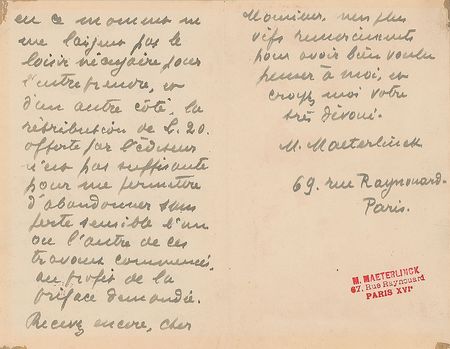 en ce moment ne
me laissent pas le
loisir nécessaire pour
l'entreprendre, et
d'un autre côté, la
rétribution de L. 20.
offerte par l'éditeur
n'est pas suffisante
pour me permettre
d'abandonner sans
perte sensible l'un
ou l'autre de ces
travaux commencés,
au profit de la
préface demandée.
Recevez encore, cher
Monsieur, mes plus
vifs remerciements
pour avoir bien voulu
penser à moi, et
croyez moi votre
très dévoué.
M. Maeterlinck
69. rue Raynouard.
Paris.
M. MAETERLINCK
67, Rue Raynouard
PARIS XVIe